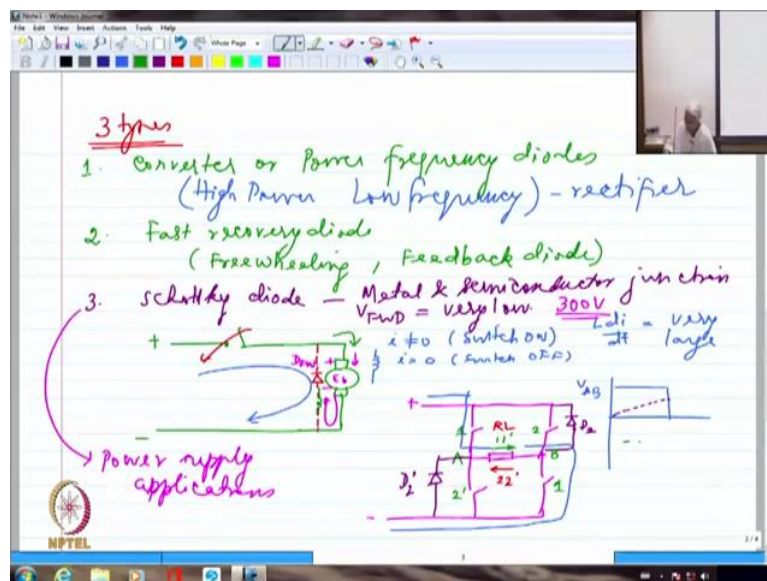 Note1 - Windows Journal
File Edit View Insert Actions Tools Help
Whole Page
B I
3 types
1. Converter or Power frequency diodes
(High Power Low frequency) - rectifier
2. Fast recovery diode
(Freewheeling, Feedback diode)
3. Schottky diode - Metal & semiconductor junction
V_FWD = very low 300V
i ≠ 0 (Switch ON)
i = 0 (Switch OFF)
L di/dt = very large
+
D_FW
+
E_b
-
Power supply applications
+
1
RL
11'
2
D_2
A
B
D_2'
2'
22'
1
-
V_AB
NPTEL
3/4
3